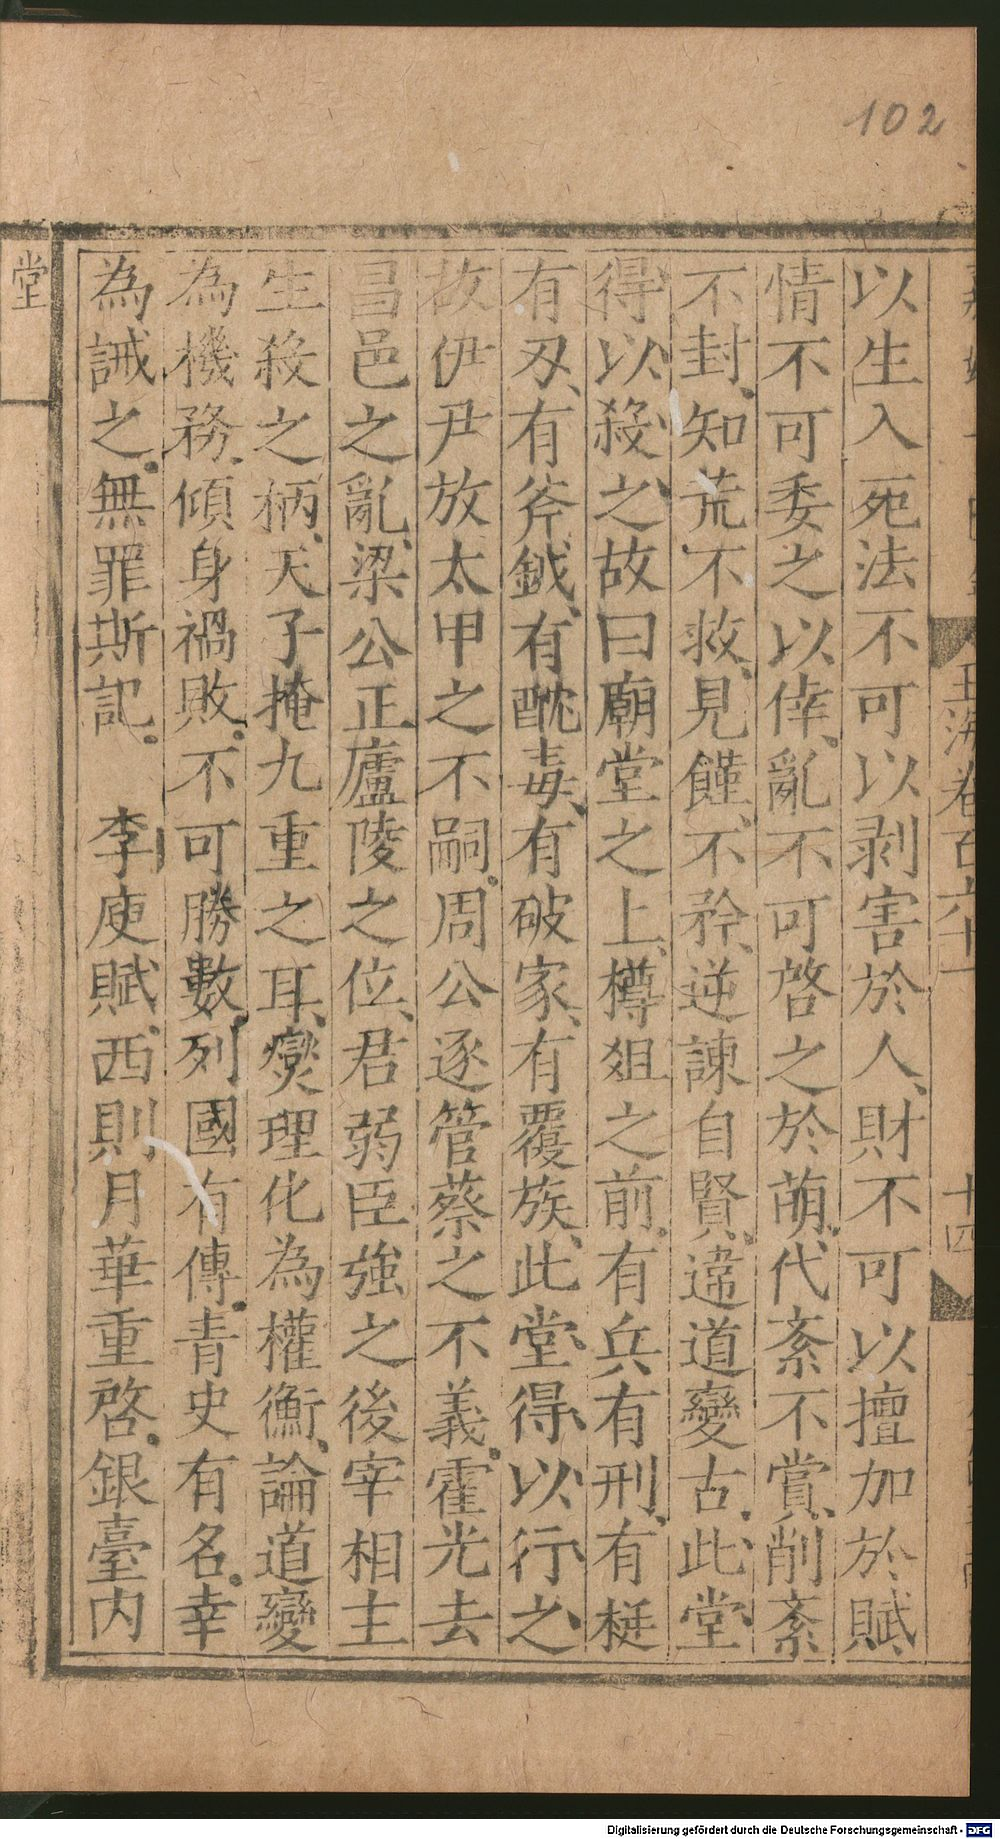 102
玉海卷百六十一 十四
以生入死法不可以剥害於人、財不可以擅加於賦、
情不可委之以倖、亂不可啓之於萌、代紊不賞、削紊
不封、知荒不救、見饉不矜、逆諫自賢、違道變古、此堂
得以殺之、故曰廟堂之上、樽俎之前、有兵有刑、有梃
有刃、有斧鉞、有酖毒、有破家、有覆族、此堂得以行之、
故伊尹放太甲之不嗣、周公逐管蔡之不義、霍光去
昌邑之亂、梁公正廬陵之位、君弱臣強之後宰相主
生殺之柄、天子掩九重之耳、燮理化為權衡、論道變
為機務、傾身禍敗、不可勝數、列國有傳、青史有名、幸
為誡之、無罪斯記。 李庾賦、西則月華重啓、銀臺内
堂
Digitalisierung gefördert durch die Deutsche Forschungsgemeinschaft - DFG